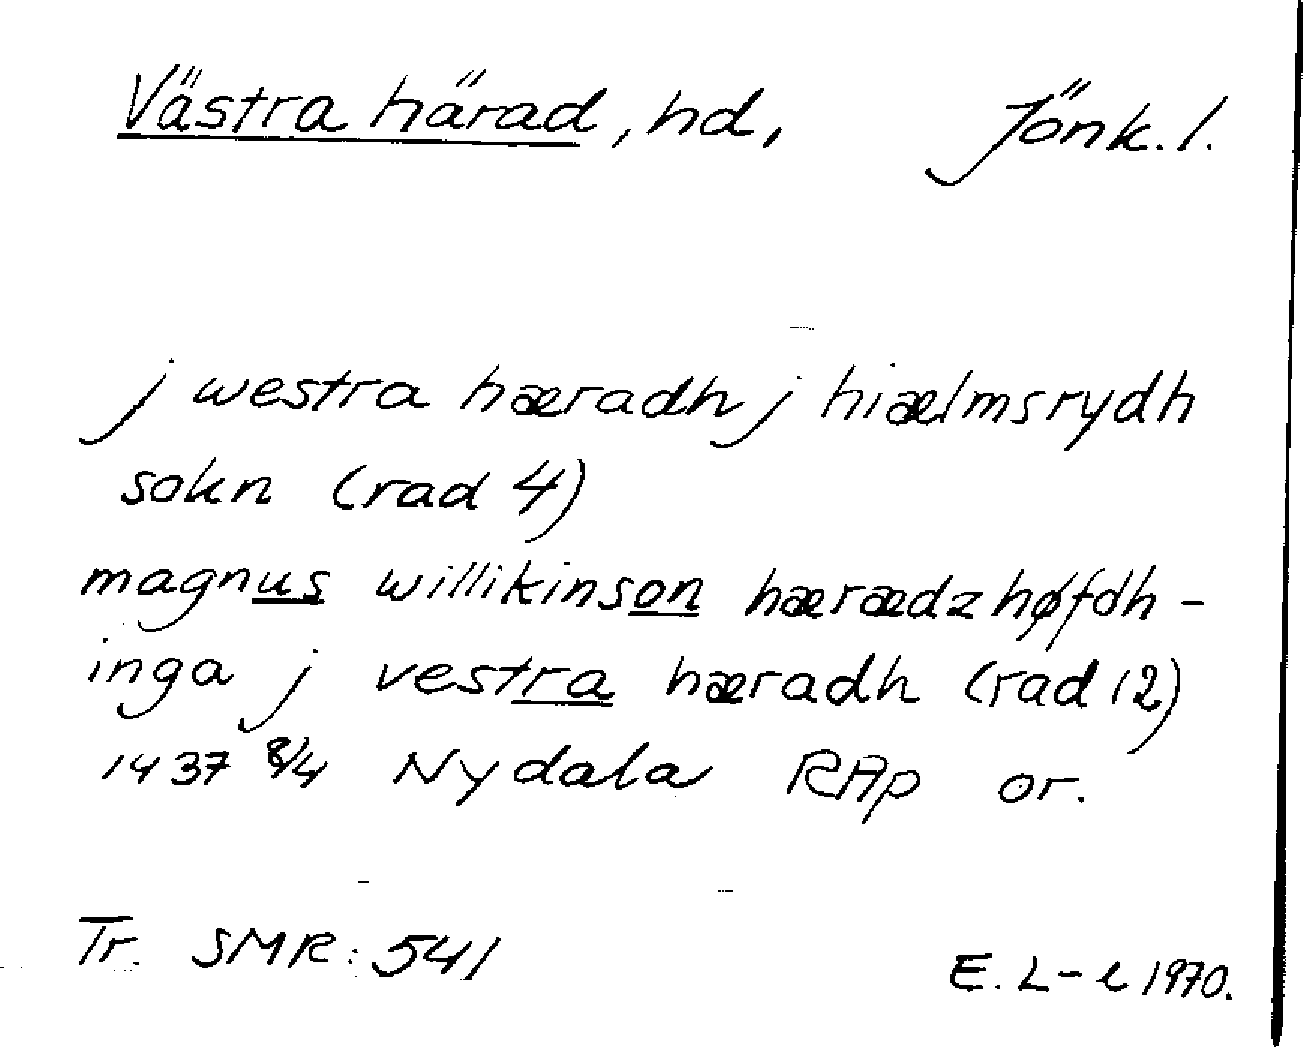 Västra härad, hd, Jönk. l.
j westra hæradh j hiælmsrydh
sokn (rad 4)
magnus willikinson hærædzhøfdh-
inga j vestra hæradh (rad 12)
1437 8/4 Nydala RAp or.
Tr. SMR: 541
E. L-e 1970.